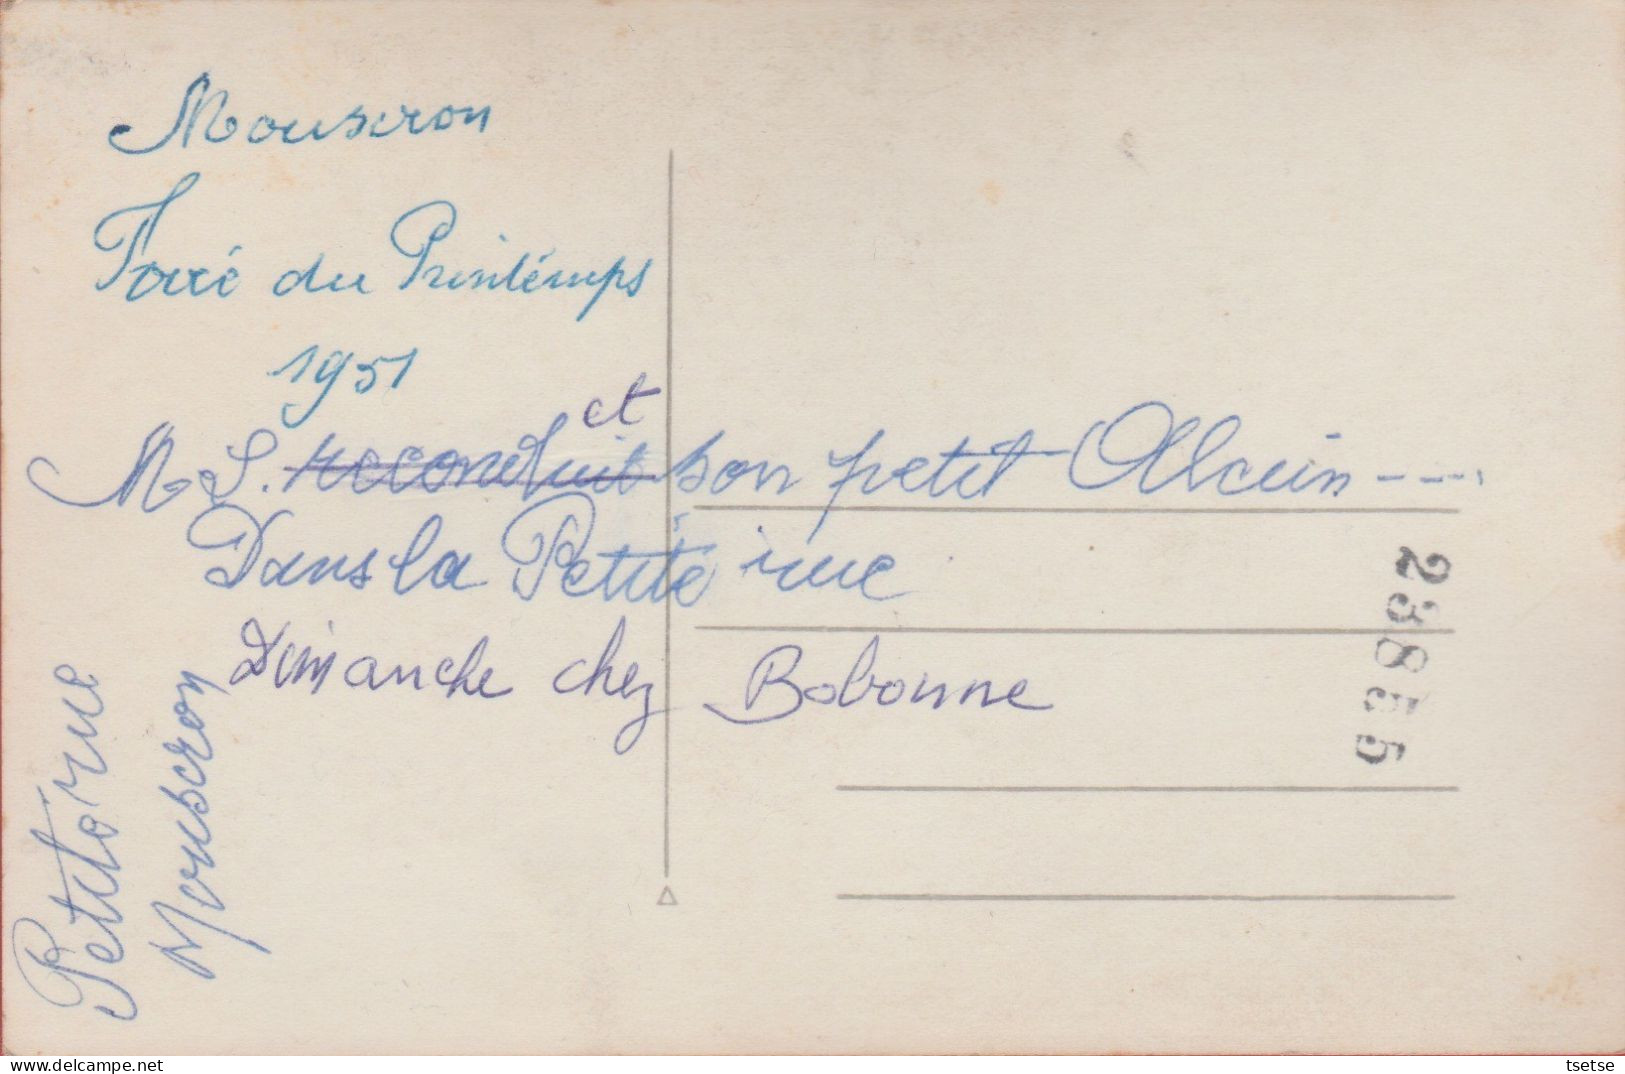 Mouscron
Foiré du Printémps
1951
et
M L. reconduit son petit Alcuin ----
Dans la Petite rue
Dimanche chez Bobonne
Petite rue
Mouscron
23855
delcampe.net
tsetse